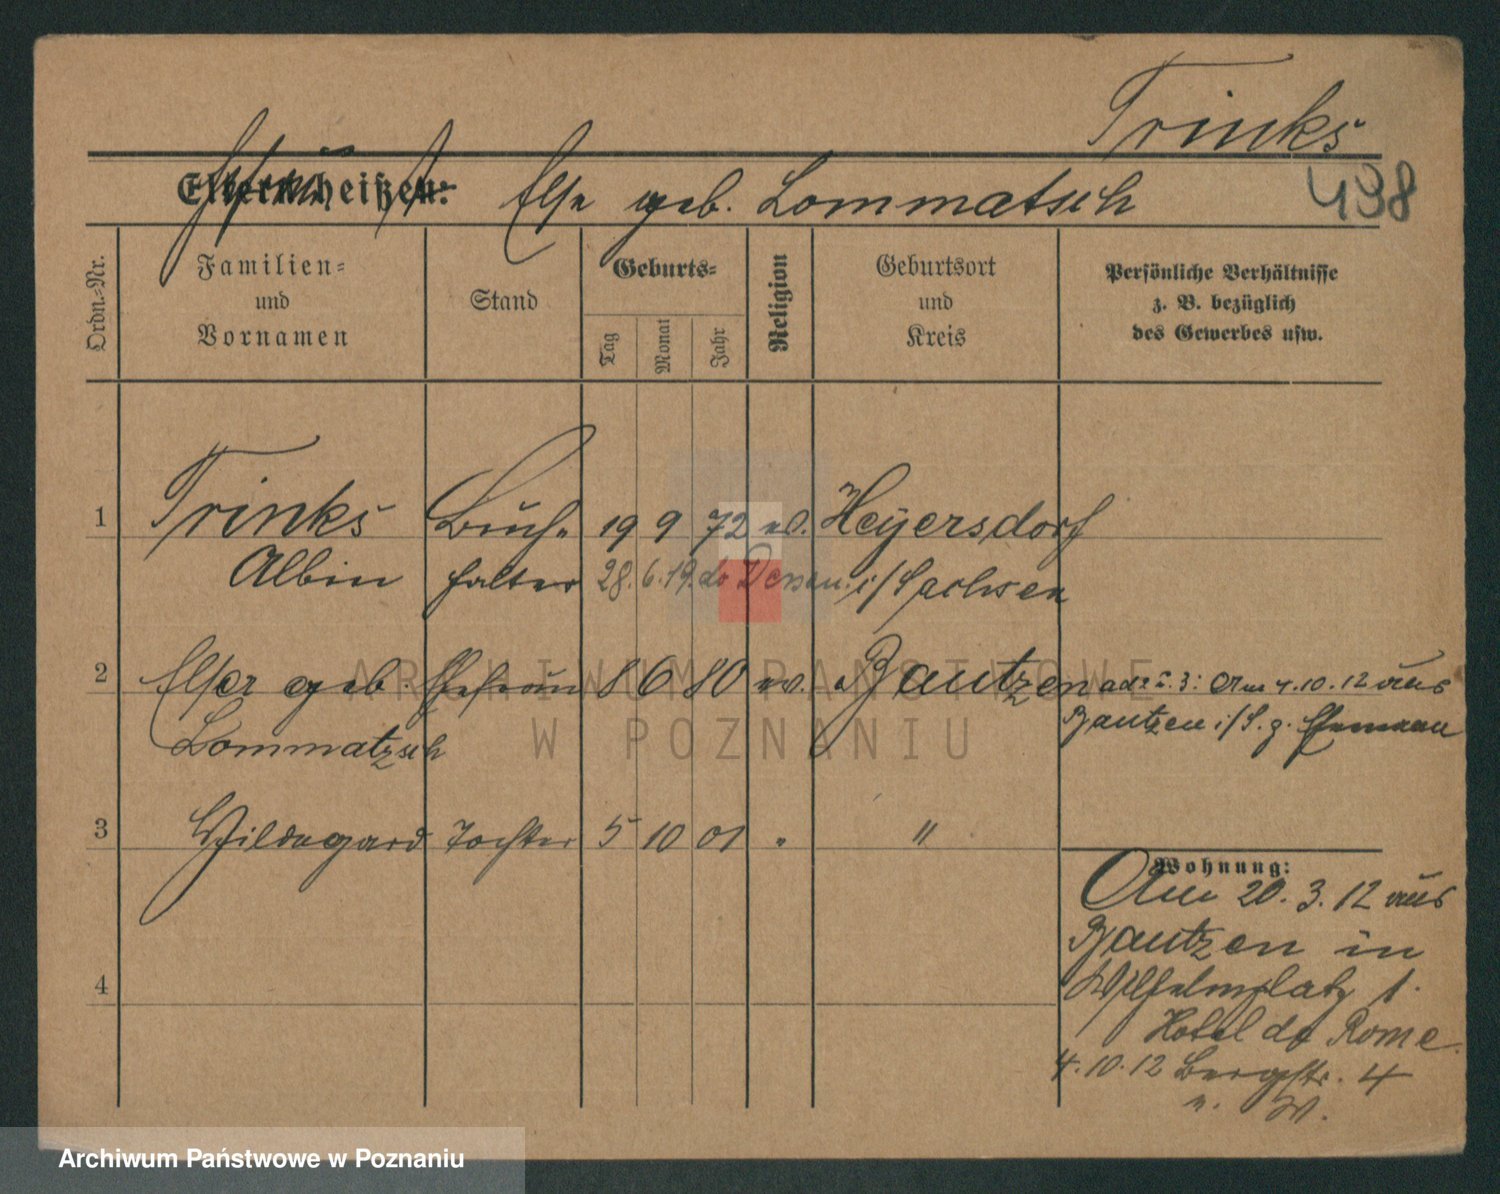 Trinks
Eltern heißen: Else geb. Lommatsch
498
Ordn.-Nr.
Familien-
und
Vornamen
Stand
Geburts-
Tag
Monat
Jahr
Religion
Geburtsort
und
Kreis
Persönliche Verhältnisse
z. B. bezüglich
des Gewerbes usw.
1 Trinks Buch- 19 9 72 ev. Heyersdorf
Albin halter 28. 6. 19. do Dessau. i/Sachsen
2 Else geb Ehefrau 8 6 80 ev. Bautzen ad 2 u. 3: Am 4.10.12 aus
Lommatzsch Bautzen i/S. z. Ehemann
3 Hildegard Tochter 5 10 01 " "
Wohnung:
Am 20. 3. 12 aus
Bautzen in
Wilhelmplatz 1.
Hotel de Rome.
4
4.10.12 Bergstr. 4
ARCHIWUM PAŃSTWOWE
W POZNANIU
Archiwum Państwowe w Poznaniu